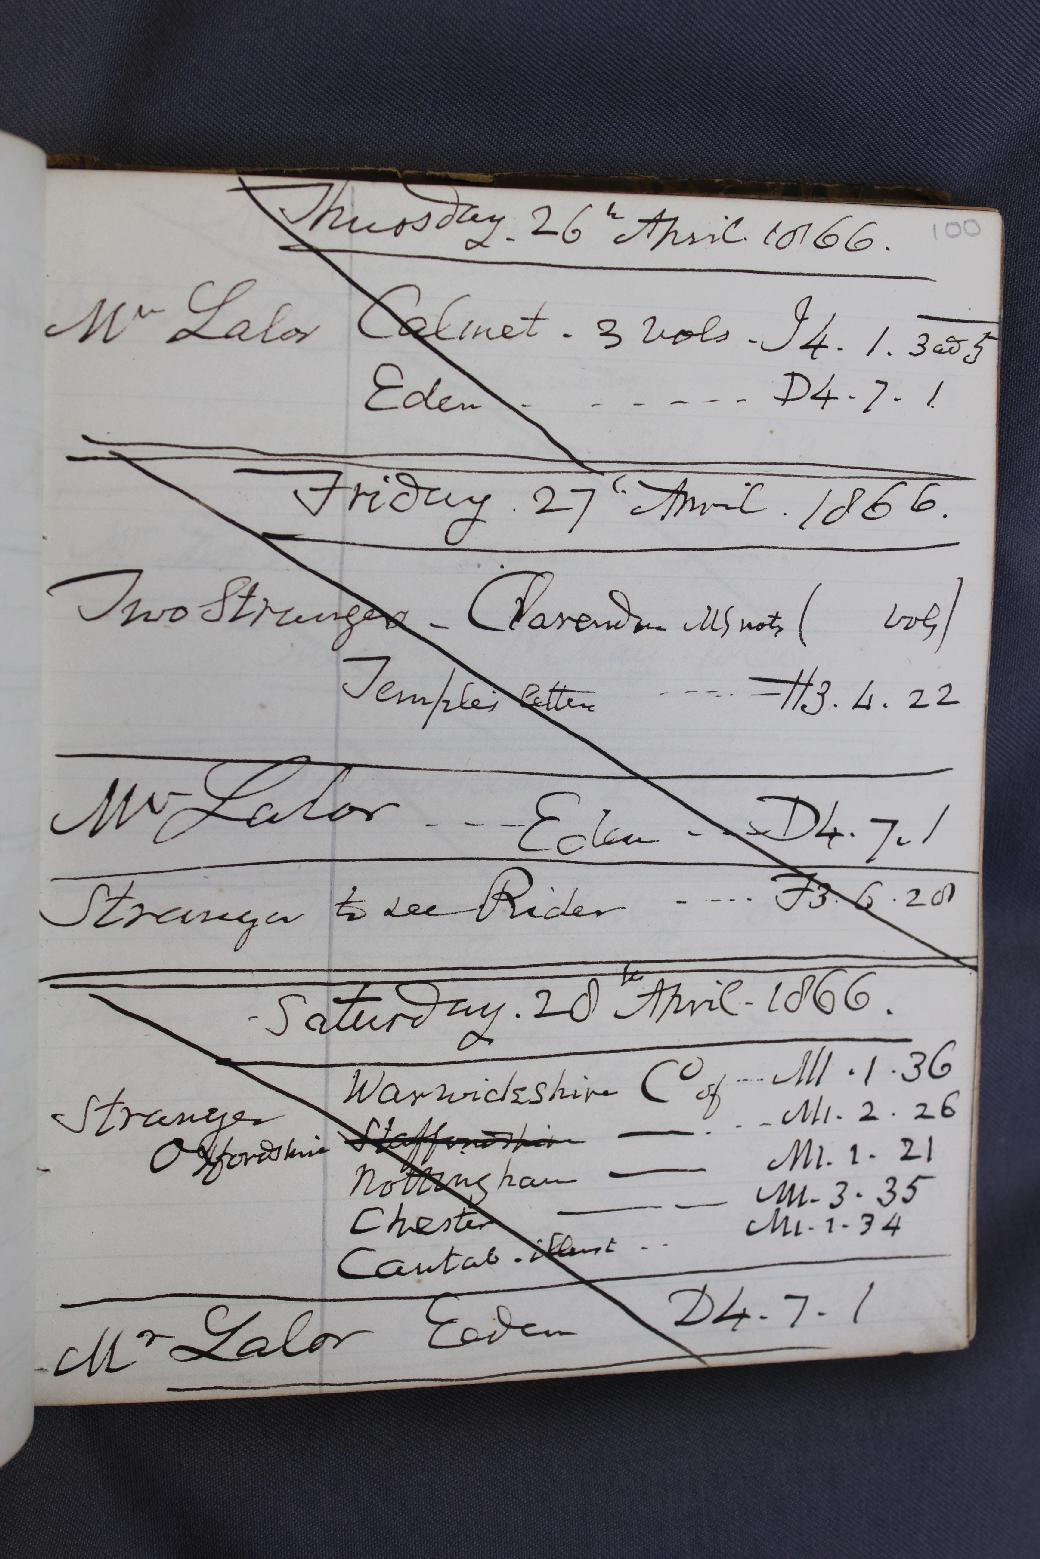 100
Thursday. 26th April. 1866.
Mr Lalor Calmet - 3 vols - J4. 1. 3 ad 5
Eden - - - - - - D4. 7. 1
Friday. 27th April. 1866.
Two Strangers - Clarendon MS nots ( vols)
Temple's letters - - - - H3. 4. 22
Mr Lalor - - - Eden - - - D4. 7. 1
Stranger to see Rider - - - - F3. 6. 28
Saturday. 28th April - 1866.
Warwickshire Co of - - - M1. 1. 36
Stranger
Oxfordshire Staffordshire — - - - M1. 2. 26
Nottingham — M1. 1. 21
Chester — — — M1. 3. 35
Cantab. illust - - M1. 1. 34
Mr Lalor Eeden D4. 7. 1